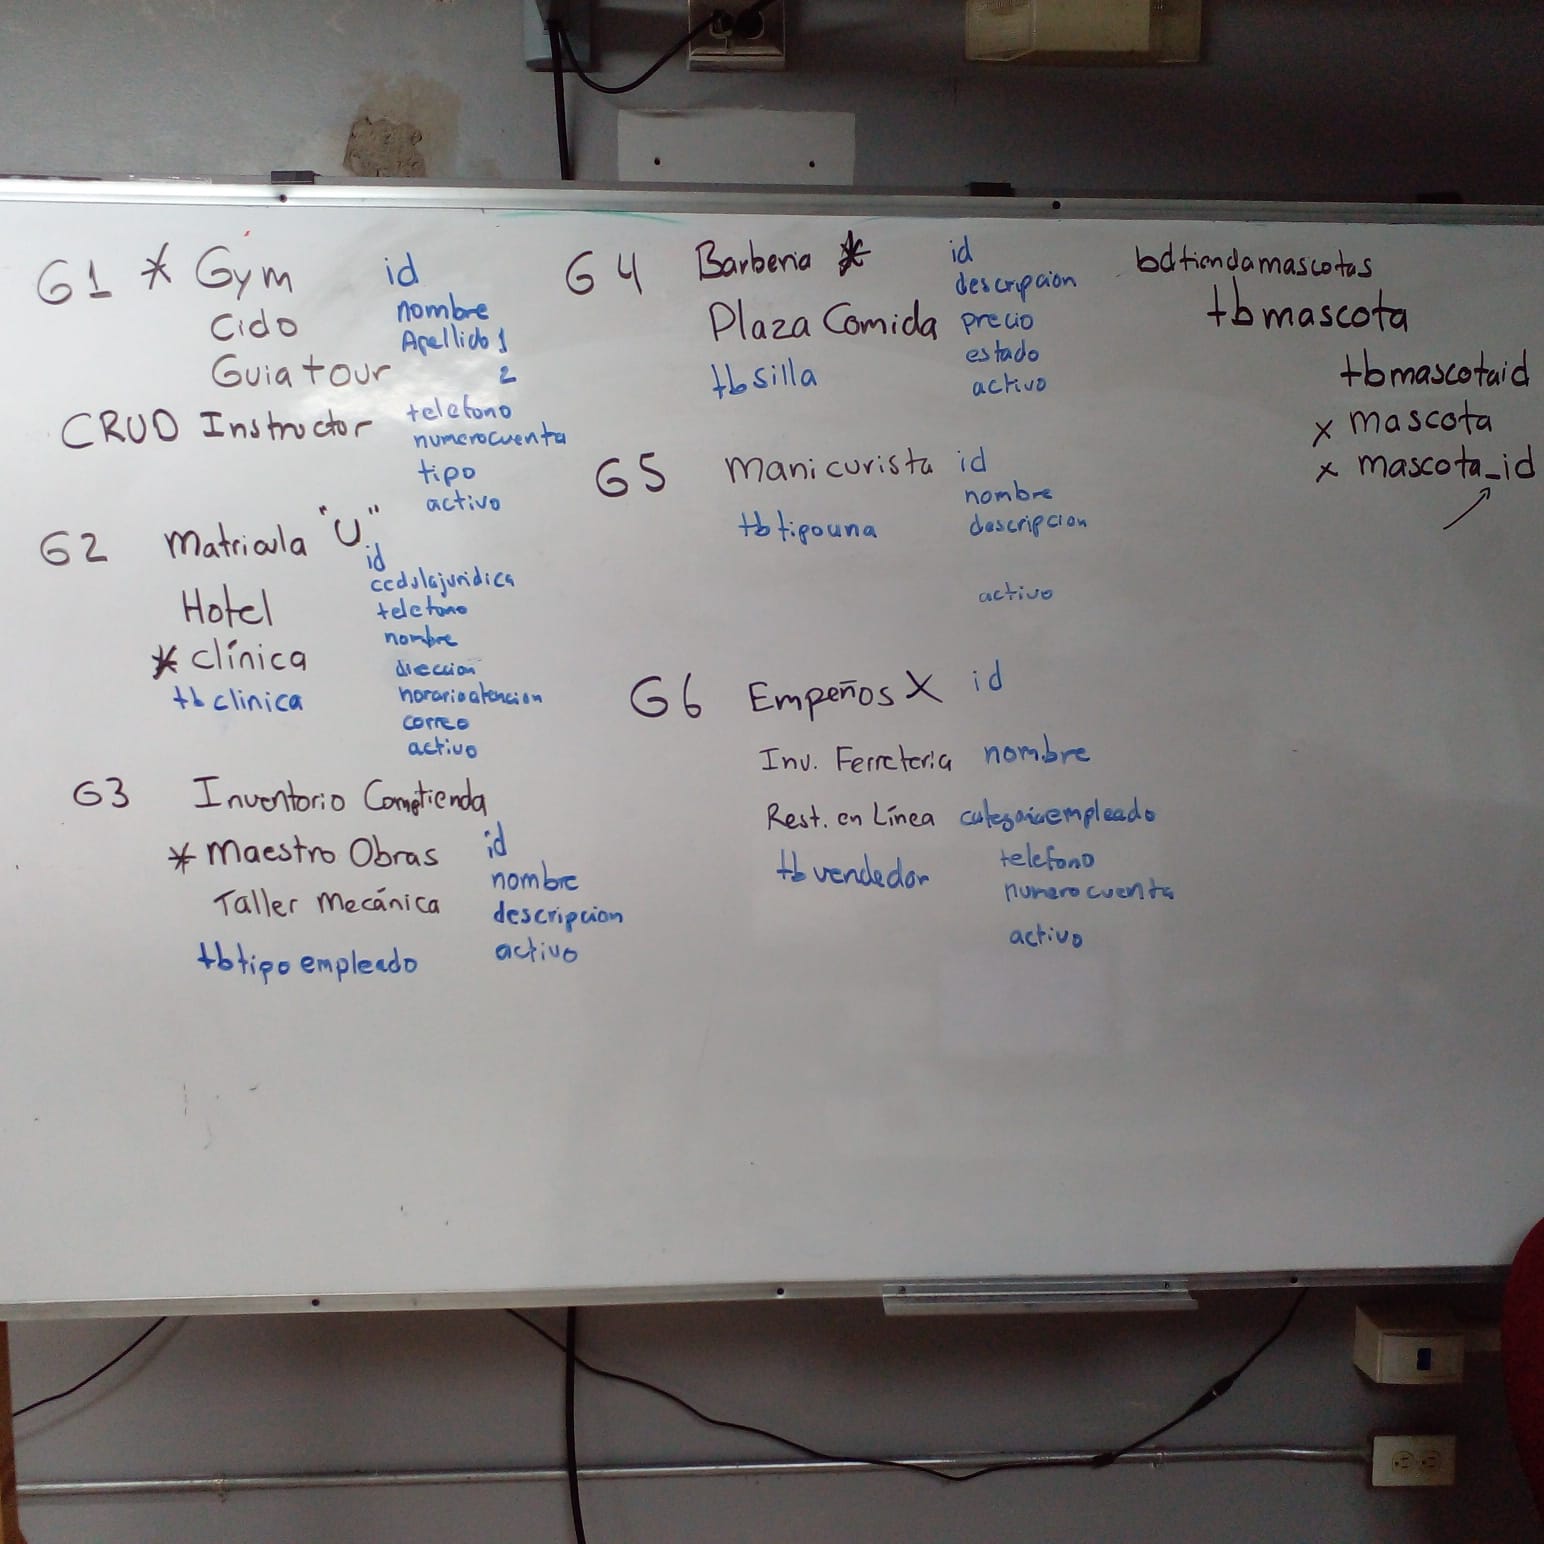 G1 * Gym
Ciclo
Guia tour
CRUD Instructor
id
nombre
Apellido 1
2
telefono
numerocuenta
tipo
activo
G2 Matricula "U"
Hotel
* clínica
tb clinica
id
cedulajuridica
telefono
nombre
direccion
horarioatencion
correo
activo
G3 Inventorio
* Maestro Obras
Taller Mecánica
tbtipoempleado
id
nombre
descripcion
activo
G4 Barberia *
Plaza Comida
tbsilla
id
descripcion
precio
estado
activo
G5 Manicurista
tbtipouna
id
nombre
descripcion
activo
G6 Empeños X
Inv. Ferreteria
Rest. en Línea
tbvendedor
id
nombre
categoriaempleado
telefono
numerocuenta
activo
bdtiendamascotas
tbmascota
tbmascotaid
x mascota
x mascota_id